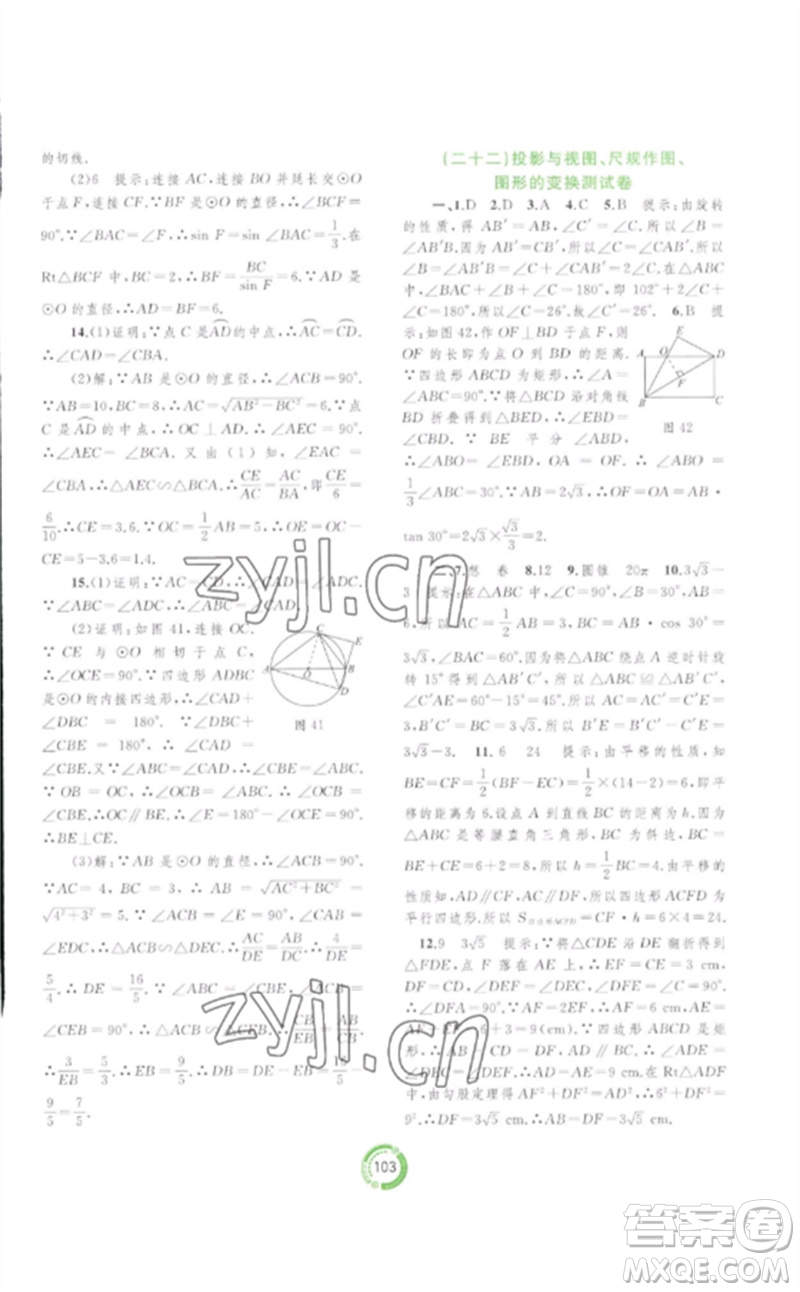 的切线.
(2)6 提示:连接 AC,连接 BO 并延长交⊙O
于点 F,连接 CF.∵BF 是⊙O 的直径,∴∠BCF=
90°.∵∠BAC=∠F,∴sin F=sin∠BAC=1/3.在
Rt△BCF 中,BC=2,∴BF=BC/sin F=6.∵AD 是
⊙O 的直径,∴AD=BF=6.
14.(1)证明:∵点 C 是AD的中点,∴AC=CD.
∴∠CAD=∠CBA.
(2)解:∵AB 是⊙O 的直径,∴∠ACB=90°.
∵AB=10,BC=8,∴AC=√(AB²-BC²)=6.∵点
C 是AD的中点,∴OC⊥AD.∴∠AEC=90°.
∴∠AEC=∠BCA.又由(1)知,∠EAC=
∠CBA,∴△AEC∽△BCA.∴CE/AC=AC/BA,即CE/6=
6/10.∴CE=3.6.∵OC=1/2AB=5,∴OE=OC-
CE=5-3.6=1.4.
15.(1)证明:∵AC=CD,∴∠CAD=∠ADC.
∵∠ABC=∠ADC,∴∠ABC=∠CAD.
(2)证明:如图 41,连接 OC.
∵CE 与⊙O 相切于点 C,
∴∠OCE=90°.∵四边形 ADBC
是⊙O 的内接四边形,∴∠CAD+
∠DBC=180°.∵∠DBC+
∠CBE=180°,∴∠CAD=
∠CBE.又∵∠ABC=∠CAD,∴∠CBE=∠ABC.
∵OB=OC,∴∠OCB=∠ABC.∴∠OCB=
∠CBE.∴OC∥BE.∴∠E=180°-∠OCE=90°.
∴BE⊥CE.
(3)解:∵AB 是⊙O 的直径,∴∠ACB=90°.
∵AC=4,BC=3,∴AB=√(AC²+BC²)=
√(4²+3²)=5.∵∠ACB=∠E=90°,∠CAB=
∠EDC,∴△ACB∽△DEC.∴AC/DE=AB/DC.∴4/DE=
5/4.∴DE=16/5.∵∠ABC=∠CBE,∠ACB=
∠CEB=90°,∴△ACB∽△CEB.∴BC/EB=AB/CB.
∴3/EB=5/3.∴EB=9/5.∴BD=DE-EB=16/5-
9/5=7/5.
图 41
(二十二)投影与视图、尺规作图、
图形的变换测试卷
一、1.D 2.D 3.A 4.C 5.B 提示:由旋转
的性质,得 AB′=AB,∠C′=∠C.所以∠B=
∠AB′B.因为 AB′=CB′,所以∠C=∠CAB′.所以
∠B=∠AB′B=∠C+∠CAB′=2∠C.因为
∠B+∠BAC+∠C=180°,即 102°+2∠C+
∠C=180°,所以∠C=26°.故∠C′=26°. 6.B 提
示:如图 42,作 OF⊥BD 于点 F,则
OF 的长即为点 O 到 BD 的距离.
∵四边形 ABCD 为矩形,∴∠A=
∠ABC=90°.∵将△BCD 沿对角线
BD 折叠得到△BED,∴∠EBD=
∠CBD.∵BE 平分∠ABD,
∴∠ABO=∠EBD,OA=OF.∴∠ABO=
1/3∠ABC=30°.∵AB=2√3,∴OF=OA=AB·
tan 30°=2√3×√3/3=2.
图 42
二、7.悠 卷 8.12 9.圆锥 20π 10.3√3-
3 提示:在△ABC 中,∠ACB=90°,∠B=30°,AB=
6,所以 AC=1/2AB=3,BC=AB·cos 30°=
3√3,∠BAC=60°.因为将△ABC 绕点 A 逆时针旋
转 15°得到△AB′C′,所以△ABC≌△AB′C′,
∠C′AE=60°-15°=45°.所以 C′E=AC′=AC=
3,B′C′=BC=3√3.所以 B′E=B′C′-C′E=
3√3-3. 11.6 24 提示:由平移的性质,知
BE=CF=1/2(BF-EC)=1/2×(14-2)=6,即平
移的距离为 6.设点 A 到直线 BC 的距离为 h.因为
△ABC 是等腰直角三角形,BC 为斜边,BC=
BE+CE=6+2=8,所以 h=1/2BC=4.由平移的
性质知,AD∥CF,AC∥DF,所以四边形 ACFD 为
平行四边形,所以 S四边形ACFD=CF·h=6×4=24.
12.9 3√5 提示:∵将△CDE 沿 DE 翻折得到
△FDE,点 F 落在 AE 上,∴EF=CE=3 cm,
CD=DF,∠DEC=∠DEF,∠DFE=∠C=90°.
∴∠DFA=90°.∵AF=2EF,∴AF=6 cm,AE=
AF+EF=6+3=9(cm).∵四边形 ABCD 是矩
形,∴AD∥BC.∴∠ADE=∠DEC.∴∠ADE=
∠DEF.∴AD=AE=9 cm.∵在 Rt△ADF
中,由勾股定理得 AF²+DF²=AD²,∴6²+DF²=
9².∴DF=3√5 cm.∴CD=DF=3√5 cm.
103
zyjl.cn
zyjl.cn
答案卷
MXQE.COM